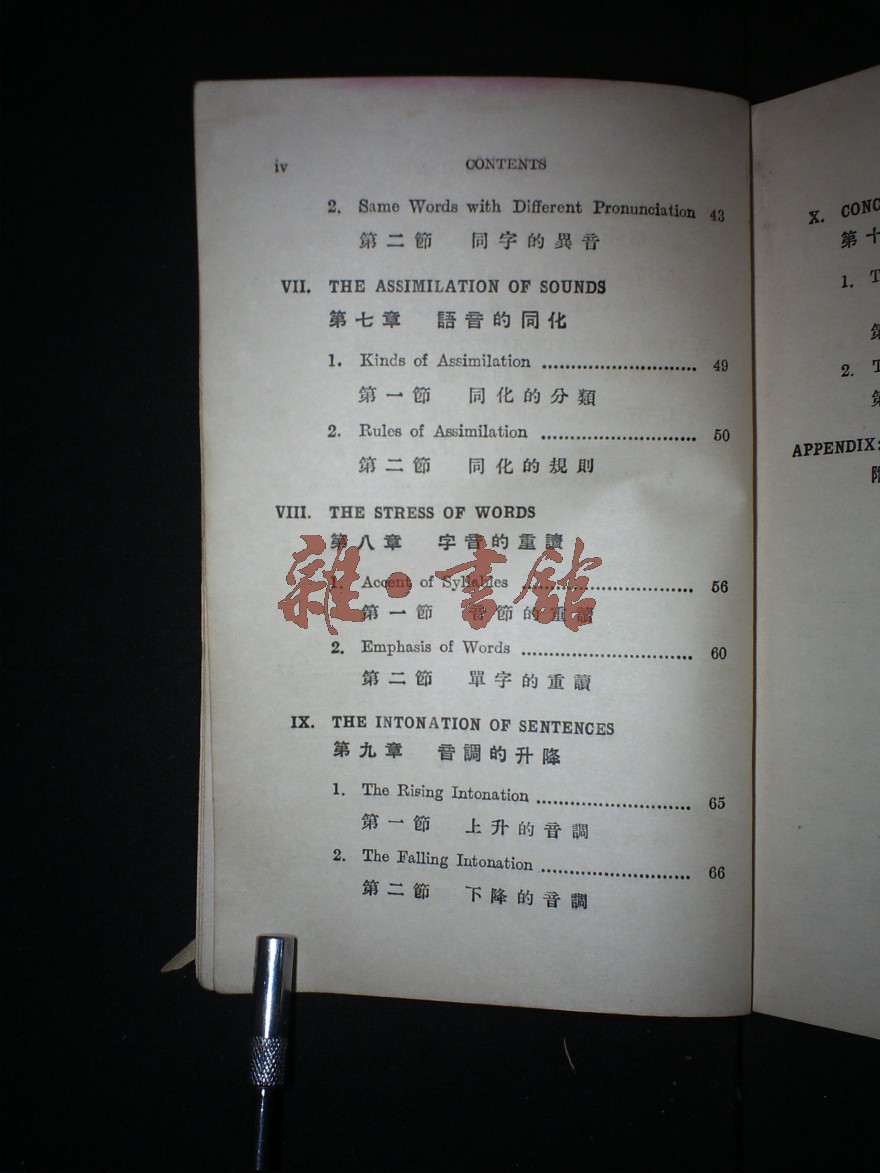 iv CONTENTS
2. Same Words with Different Pronunciation 43
第二節 同字的異音
VII. THE ASSIMILATION OF SOUNDS
第七章 語音的同化
1. Kinds of Assimilation ........................... 49
第一節 同化的分類
2. Rules of Assimilation ........................... 50
第二節 同化的規則
VIII. THE STRESS OF WORDS
第八章 字音的重讀
1. Accent of Syllables ........................... 56
第一節 音節的重讀
雜·書館
2. Emphasis of Words ........................... 60
第二節 單字的重讀
IX. THE INTONATION OF SENTENCES
第九章 音調的升降
1. The Rising Intonation ........................... 65
第一節 上升的音調
2. The Falling Intonation ........................... 66
第二節 下降的音調
X.
第十
1.
2.
APPENDIX: